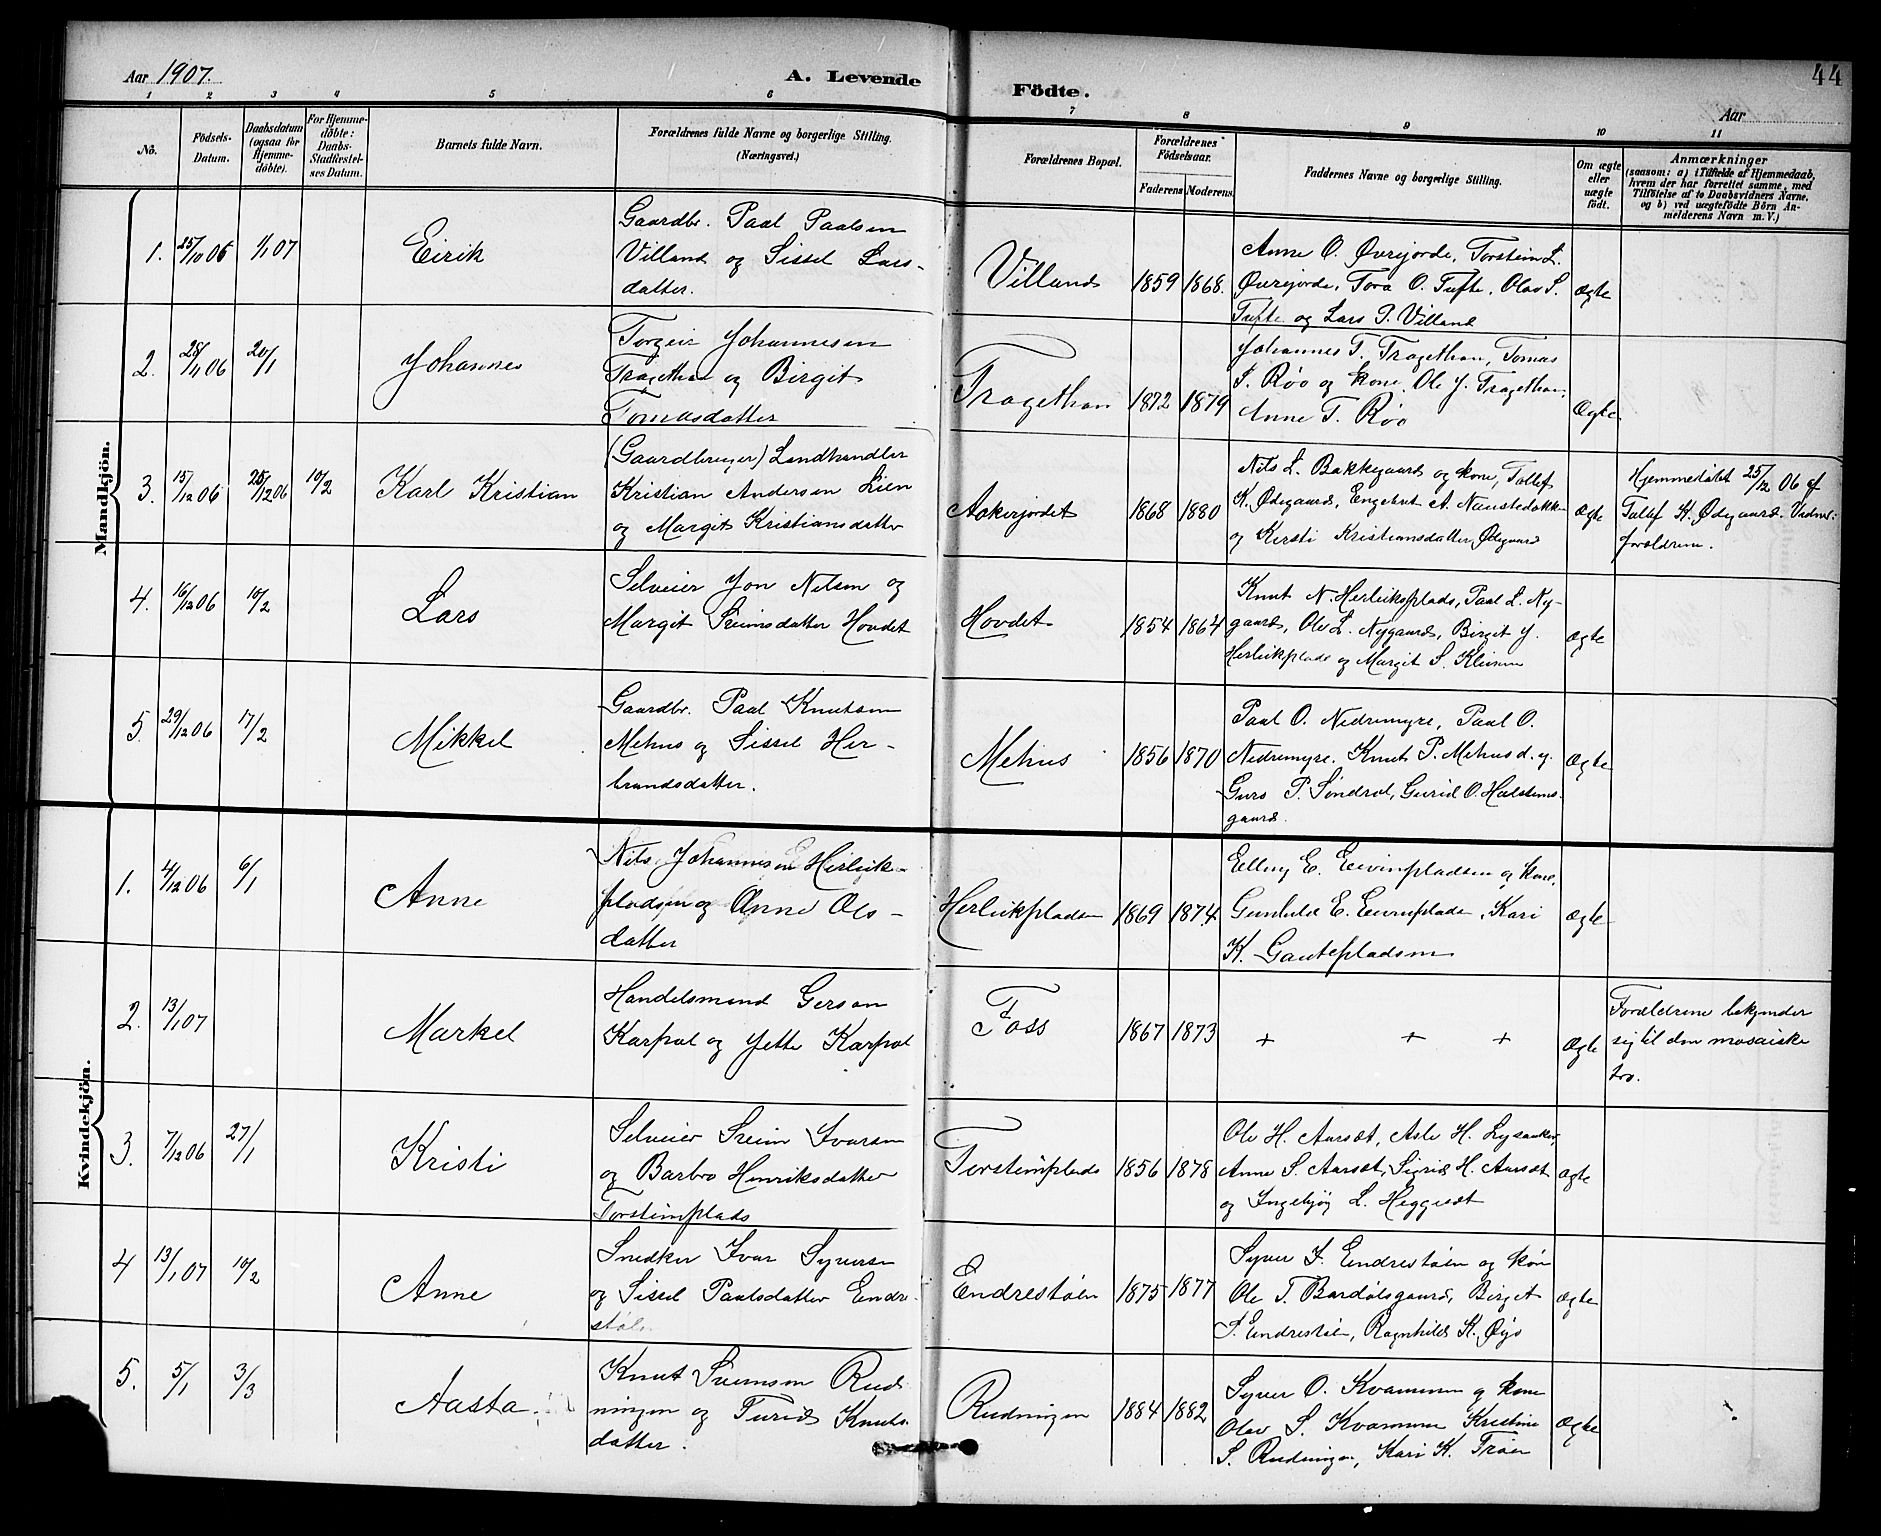 Aar 1907.
A. Levende
Födte.
Aar
44
1 2 3 4 5 6 7 8 9 10 11
No.
Födsels-
Datum.
Daabsdatum
(ogsaa for
Hjemme-
döbte).
For Hjemme-
döbte:
Daabs-
Stadfæstel-
ses Datum.
Barnets fulde Navn.
Forældrenes fulde Navne og borgerlige Stilling.
(Næringsvei.)
Forældrenes Bopæl.
Forældrenes
Födselsaar.
Faderens. Moderens.
Faddernes Navne og borgerlige Stilling.
Om ægte
eller
uægte
födt.
Anmærkninger
(saasom: a) i Tilfælde af Hjemmedaab,
hvem der har forrettet samme, med
Tilföielse af to Daabsvidners Navne,
og b) ved uægtefödte Börn An-
melderens Navn m. V.)
Mandkjön.
1. 25/10 06 1/1 07 Eirik
Gaardbr. Paal Paalsen
Villand og Sissel Lars-
datter.
Villand 1859 1868.
Anne O. Øvrejorde, Torstein L.
Øvrejorde, Tora O. Tufte, Olav S.
Tufte og Lars P. Villand
Ægte
2. 28/11 06 20/1 Johannes
Torgeir Johannesen
Tragethon og Birgit
Tomasdatter
Tragethon 1872 1879
Johannes T. Tragethon, Tomas
S. Røo og kone, Ole J. Tragethon,
Anne T. Røo
Ægte
3. 15/12 06 25/12 06 10/2 Karl Kristian
(Gaardbruger) Landhandler
Kristian Andersen Lien
og Margit Kristiansdatter
Aakerjordet 1868 1880
Nils L. Bakkegaard og kone, Tollef
K. Ødegaard, Engebret A. Naustedokk
og Kersti Kristiansdatter Ødegaard
Ægte
Hjemmedøbt 25/12 06 af
Tollef K. Ødegaard. Vidner:
forældrene.
4. 16/12 06 10/2 Lars
Selveier Jon Nilsen og
Margit Sveinsdatter Hovdet
Hovdet 1854 1864
Knut N. Herleiksplads, Paal L. Ny-
gaard, Ole L. Nygaard, Birgit J.
Herleikplads og Margit S.
Ægte
5. 29/12 06 17/2 Mikkel
Gaardbr. Paal Knutsen
Mehus og Sissel Her-
brandsdatter.
Mehus 1856 1870
Paal O. Nedremyre, Paal O.
Nedremyre, Knut P. Mehus d. y.
Guro P. Søndrol, Gurid O. Halstens-
gaard.
Ægte
Kvindekjön.
1. 4/12 06 6/1 Anne
Nils Johannesen Herleik-
pladsen og Anne Ols-
datter
Herleikpladsen 1869 1874
Elling E. Eivinpladsen og kone,
Gunhild E. Eivinpladsen, Kari
K. Gautepladsen
Ægte
2. 13/1 07 Markel
Handelsmand Gerson
Karpol og Jette Karpol
Foss 1867 1873 + + + Ægte
Forældrene bekjender
sig til den mosaiske
tro.
3. 7/12 06 27/1 Kristi
Selveier Svein Ivarsen
og Barbro Henriksdatter
Torsteinplads
Torsteinplads 1856 1878
Ole H. Aarset, Asle H. Lysaaker,
Anne S. Aarset, Sigrid H. Aarset
og Ingebjøg L. Heggeset
Ægte
4 13/1 07 10/2 Anne
Snedker Ivar Syversen
og Sissel Paalsdatter Endre-
støln
Endrestølen 1875 1877
Syver I. Endrestølen og kon
Ole T. Bardølsgaard, Birget
S. Endrestølen, Ragnhild K. Øyo
Ægte
5. 5/1 3/3 Aasta
Knut Sveinsen Rud-
ningen og Turid Knuts-
datter.
Rudningen 1884 1882
Syver O. Kvammen og kone
Olav S. Kvammen Kristine
S. Rudningen, Kari K. Trøen
Ægte